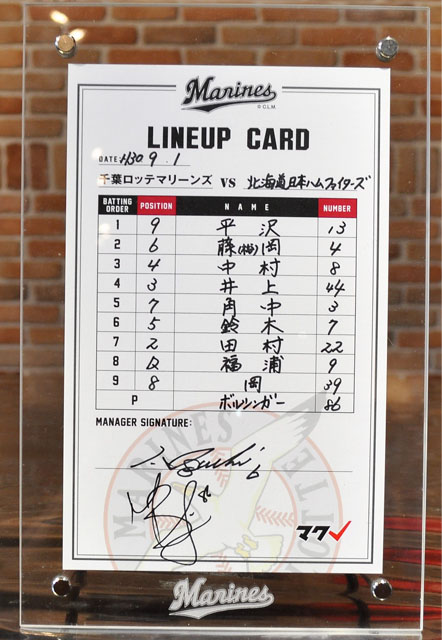 Marines
© C.L.M.
LINEUP CARD
DATE H30 9.1
千葉ロッテマリーンズ VS 北海道日本ハムファイターズ
BATTING ORDER POSITION NAME NUMBER
1 9 平沢 13
2 6 藤(裕)岡 4
3 4 中村 8
4 3 井上 44
5 7 角中 3
6 5 鈴木 7
7 2 田村 22
8 D 福浦 9
9 8 岡 39
P ボルシンガー 86
MANAGER SIGNATURE:
マクレ
MARINES
Marines